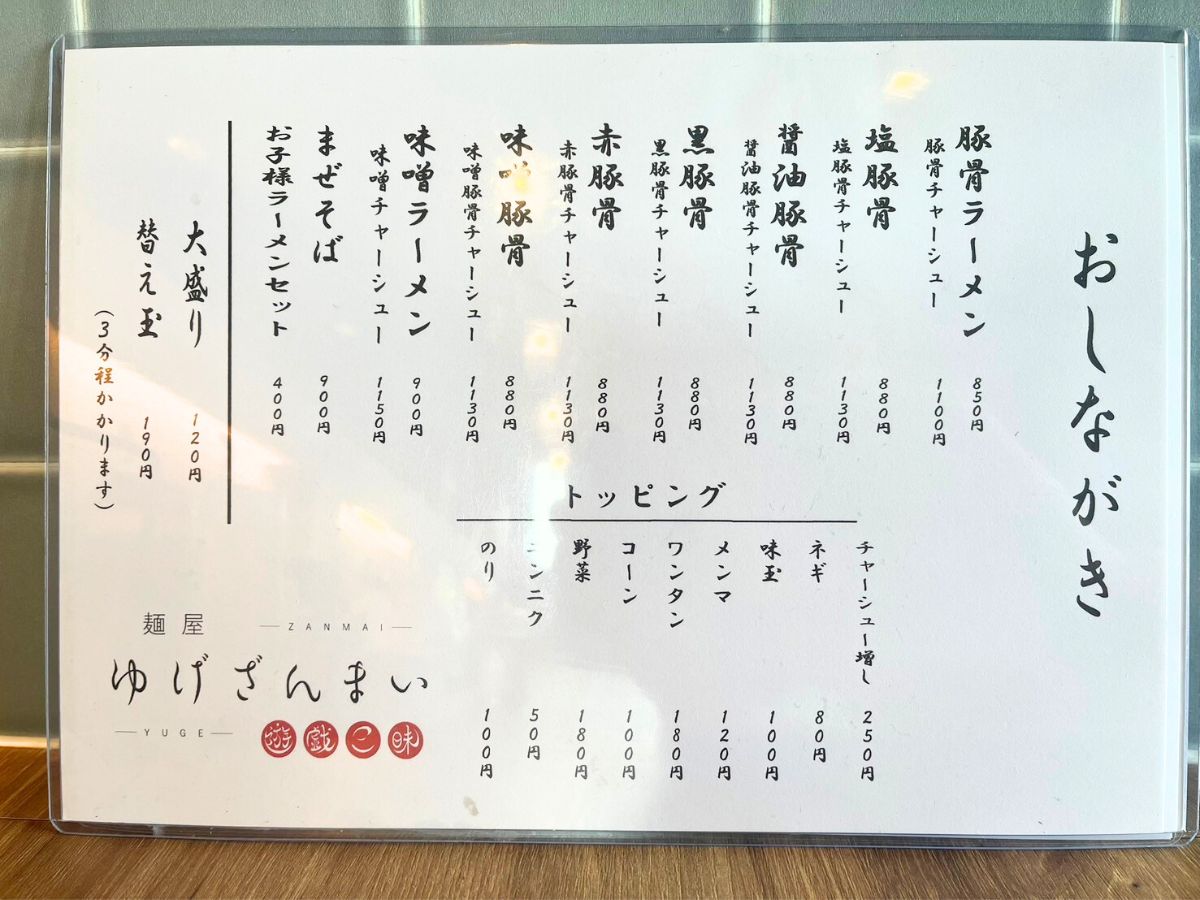 おしながき
豚骨ラーメン 850円
豚骨チャーシュー 1100円
塩豚骨 880円
塩豚骨チャーシュー 1130円
醤油豚骨 880円
醤油豚骨チャーシュー 1130円
黒豚骨 880円
黒豚骨チャーシュー 1130円
赤豚骨 880円
赤豚骨チャーシュー 1130円
味噌豚骨 880円
味噌豚骨チャーシュー 1130円
味噌ラーメン 900円
味噌チャーシュー 1150円
まぜそば 900円
お子様ラーメンセット 400円
大盛り 120円
替え玉 190円
(3分程かかります)
トッピング
チャーシュー増し 250円
ネギ 80円
味玉 100円
メンマ 120円
ワンタン 180円
コーン 100円
野菜 180円
ニンニク 50円
のり 100円
麺屋
ZANMAI
ゆげざんまい
YUGE
遊戯三昧